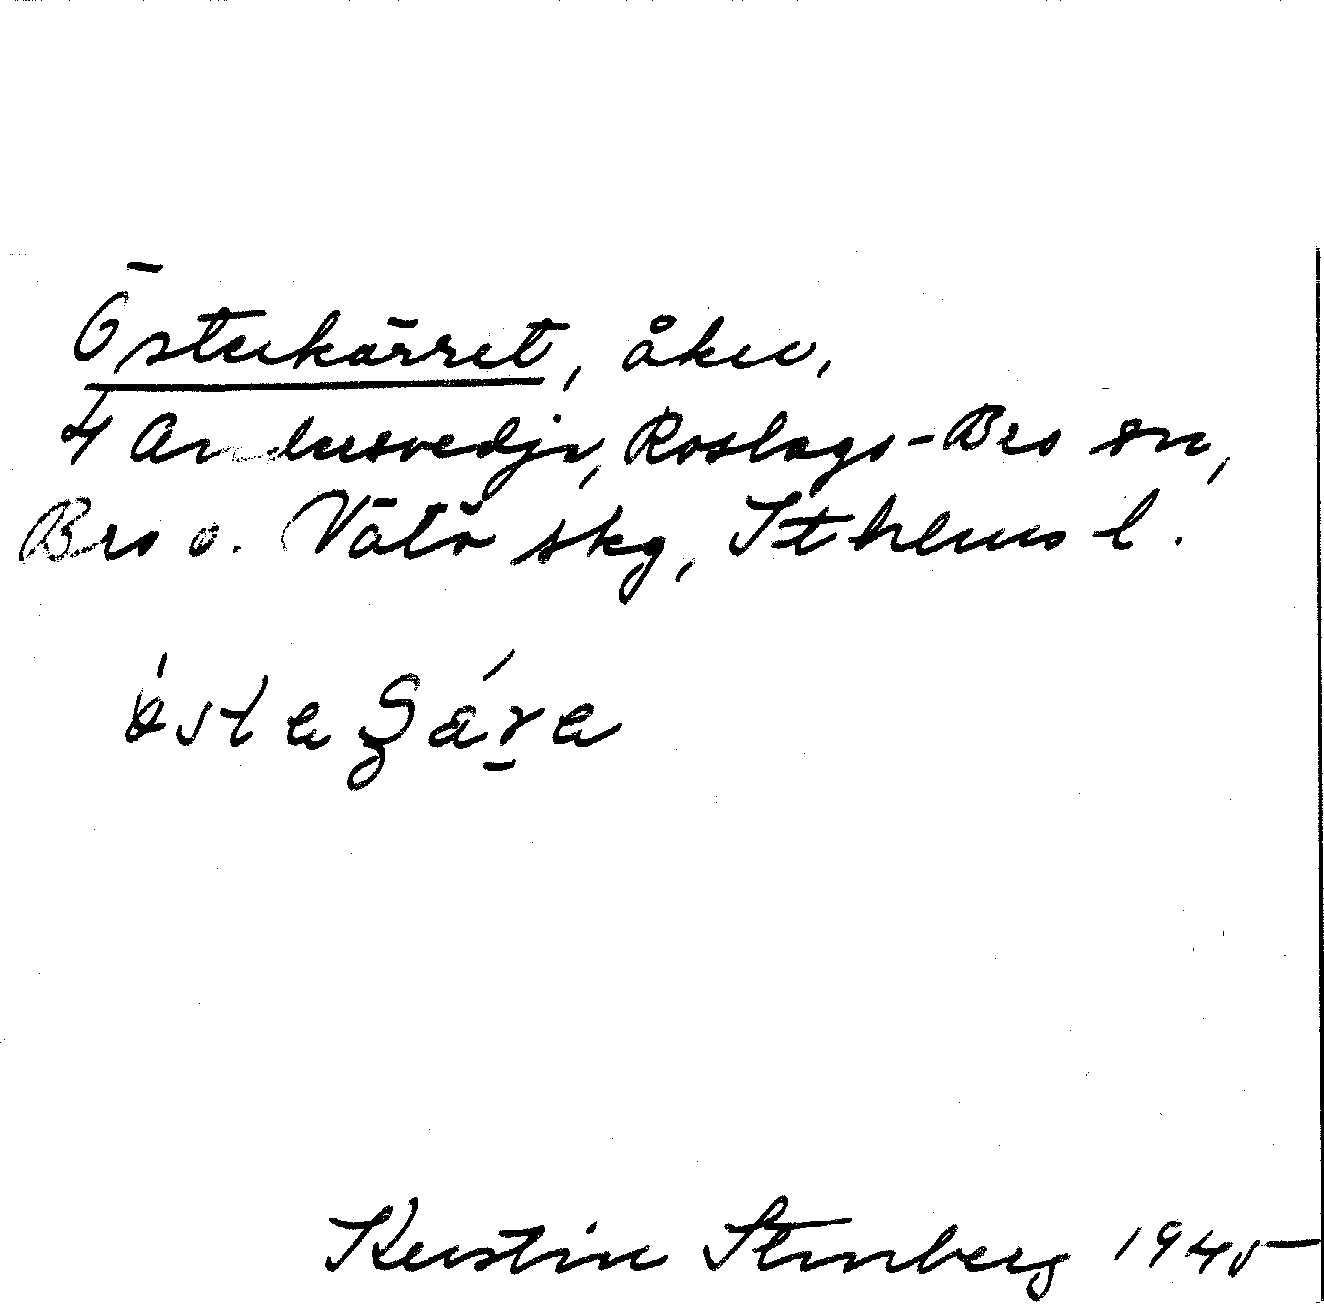 Österkärret, åker,
4 Andersvedja, Roslags-Bro sn,
Bro o. Vätö skg, Sthlms l.
Kerstin Stenberg 1945